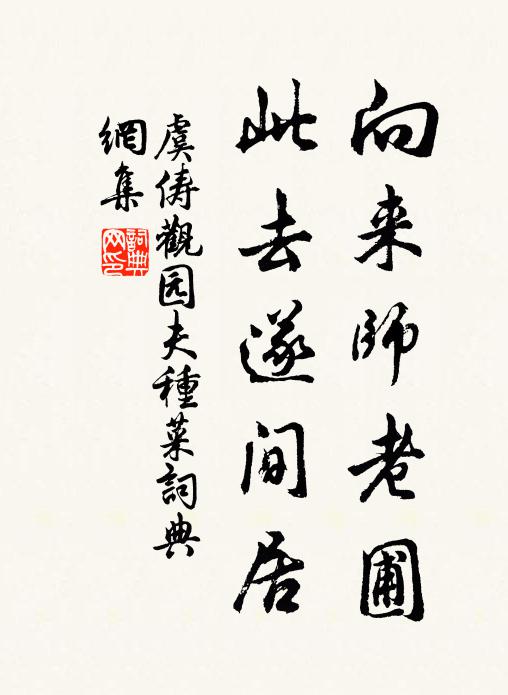 向来師老圃
此去遂间居
虞俦觀园夫種菜詞典
網集
詞典
网印